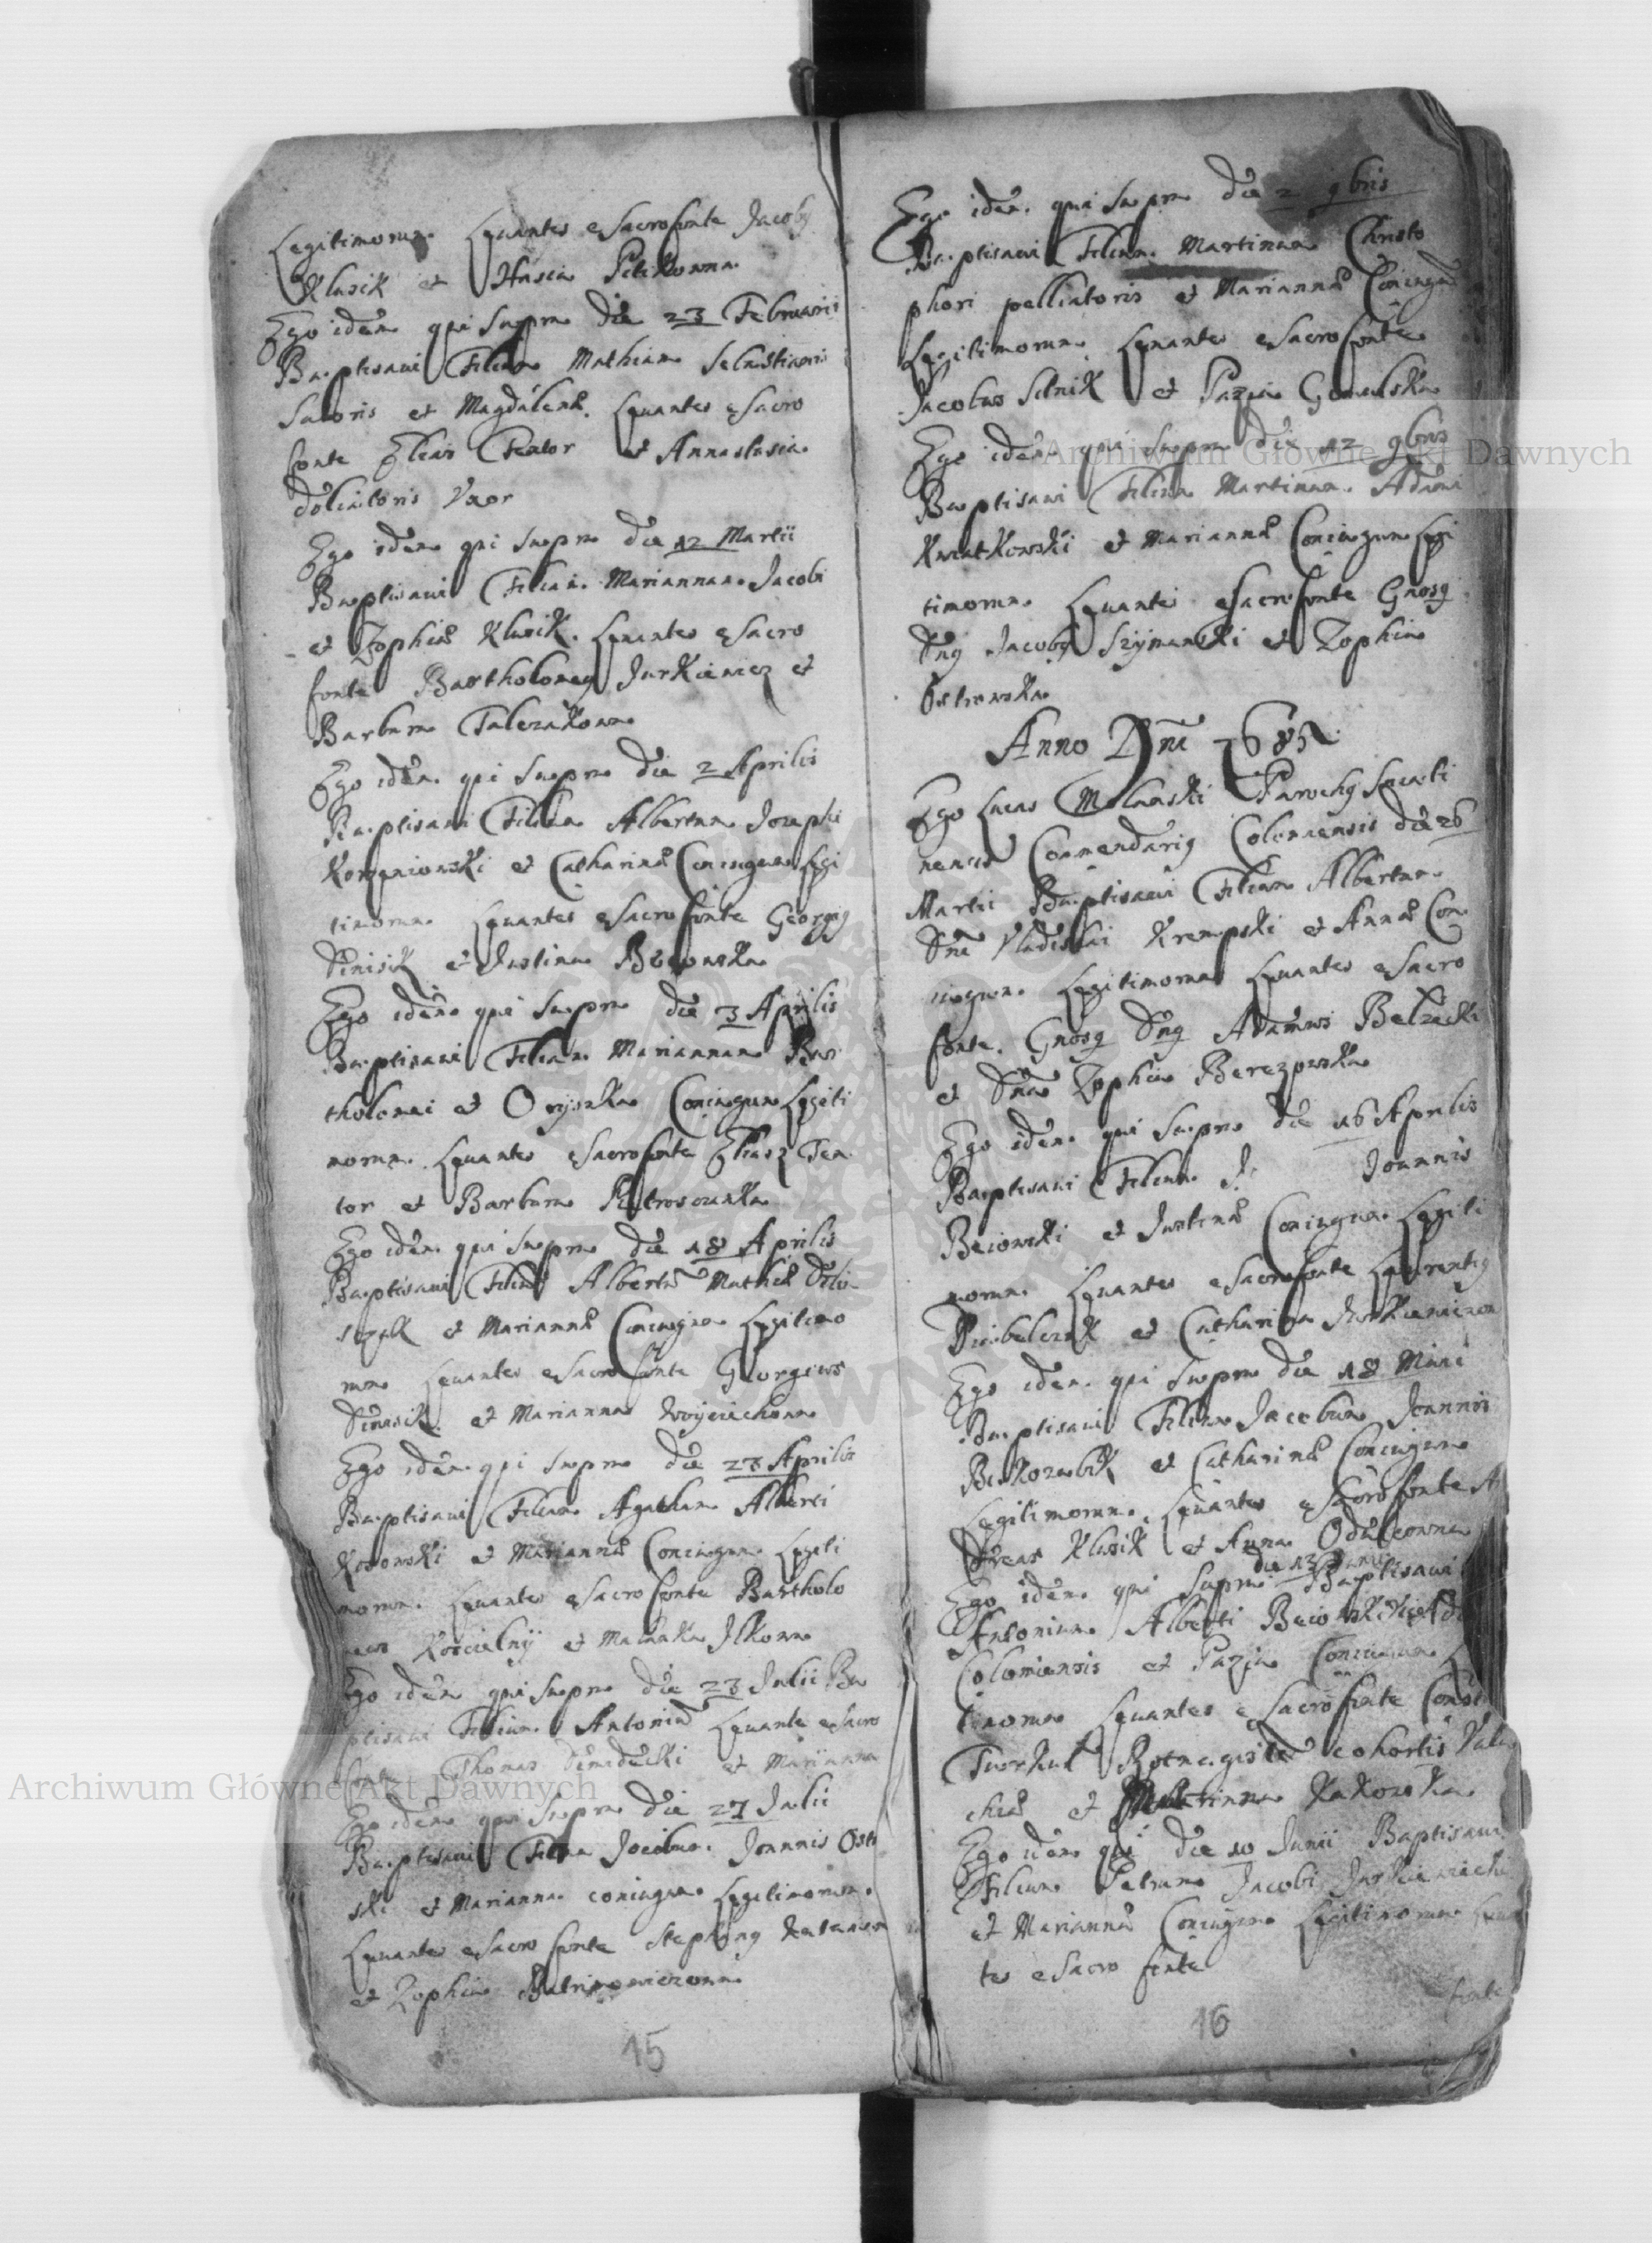 Legitimorum Levantes e Sacro fonte Jacoby
Klusik et Hasia Petrikowna
Ego idem qui Supra die 23 Februarii
Baptisavi Filium Mathiam Sebastiani
Sutoris et Magdalenæ Levantes e Sacro
fonte Elias Textor et Annastasia
doliatoris Uxor
Ego idem qui Supra die 12 Martii
Baptisavi Filiam Mariannam Jacobi
et Zophiæ Klusik Levantes e Sacro
fonte Bartholomeg Jurkiewicz et
Barbara
Ego idem qui Supra die 2 Aprilis
Baptisavi Filium Albertum Josephi
Korzeniowski et Catharinæ Coniugum Legi
timorum Levantes e Sacro fonte Georgig
Denisik et Justina
Ego idem qui Supra die 3 Aprilis
Baptisavi Filiam Mariannam Bar
tholomei et Oryszka Coniugum Legiti
morum Levantes e Sacro fonte Eliasz Tex
tor et Barbara
Ego idem qui Supra die 18 Aprilis
Baptisavi Filium Albertum Mathiæ
et Mariannæ Coniugum Legitimo
rum Levantes e Sacro fonte Georgius
Denisik et Marianna Woyciechowa
Ego idem qui Supra die 27 Aprilis
Baptisavi Filiam Agatham Alberti
Kosowski et Mariannæ Coniugum Legiti
morum Levantes e Sacro fonte Bartholo
meus Koscielnij et Ilkowa
Ego idem qui Supra die 23 Julii Ba
ptisavi Filium Antonium Levante e Sacro
fonte Thomas et Marianna
Ego idem qui Supra die 27 Julii
Baptisavi Filium Jacobum Joannis Ostr
ski et Marianna coniugum Legitimorum
Levantes e Sacro fonte Stephang
et Zophia
15
Ego idem qui Supra die 2 9bris
Baptisavi Filium Martinum Christo
phori pelliatoris et Mariannæ Coniugum
Legitimorum Levantes e Sacro fonte
Jacobus Sitnik et Pazia Gomulska
Ego idem qui Supra die 12 9bris
Baptisavi Filium Martinum Adami
Kwiatkowski et Mariannæ Coniugum Legi
timorum Levantes e Sacro fonte Gnosg
Dng Jacobg Szymanski et Zophia
Ostrowska
Anno Dni 1685
Ego Lucas Parochg Sniati
nensis Commendarig Colomensis die 26
Martii Baptisavi Filium Albertum
Dni Vladislai Krempski et Annæ Con
iugum Legitimorum Levantes e Sacro
fonte Gnosg Dng Adamus Belzecki
et Dna Zophia Berezowska
Ego idem qui Supra die 16 Aprilis
Baptisavi Filium J. Joannis
Beiowski et Justinæ Coniugum Legiti
morum Levantes e Sacro fonte Laurentig
et Catharina Jurkiewiczowa
Ego idem qui Supra die 18 Maii
Baptisavi Filium Jacobum Joannis
et Catharinæ Coniugum
Legitimorum Levantes e Sacro fonte A
dreas Klusik et Anna
Ego idem qui Supra die 13 Baptisavi
Antonium Alberti Beiowski
Colomiensis et Pazia Coniugum
timorum Levantes e Sacro fonte Const
Turkul Rotmagister cohortis Vala
chiæ et
Ego idem qui die 10 Junii Baptisavi
Filium Petrum Jacobi
et Mariannæ Coniugum Legitimorum Levan
tes e Sacro fonte
fonte
16
Archiwum Główne Akt Dawnych
Archiwum Główne Akt Dawnych